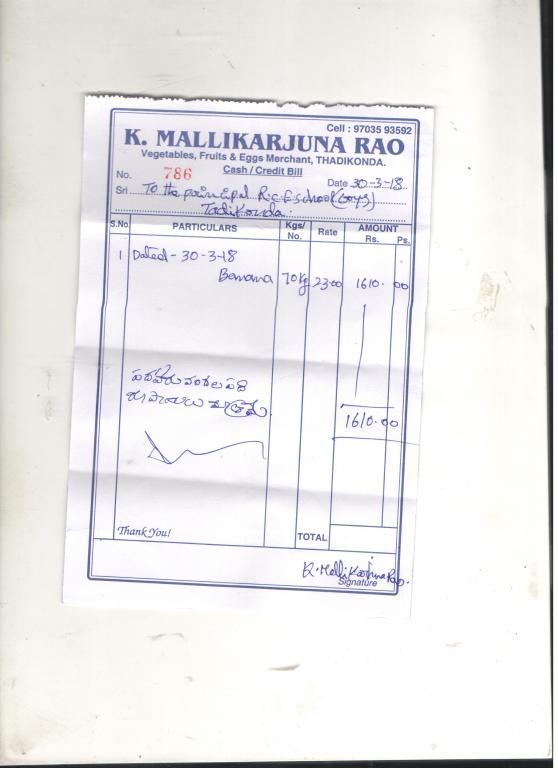 Cell : 97035 93592
K. MALLIKARJUNA RAO
Vegetables, Fruits & Eggs Merchant, THADIKONDA.
Cash / Credit Bill
No. 786 Date 30-3-18
Sri To the principal R.C.E school (boys)
Tadikonda
S.No PARTICULARS Kgs/ No. Rate AMOUNT Rs. Ps.
1 Dated - 30-3-18
Banana 70 kg 23.00 1610.00
పదహారు వందల పది
రూపాయలు మాత్రమే.
1610.00
Thank You! TOTAL
K. Mallikarjuna Rao.
Signature